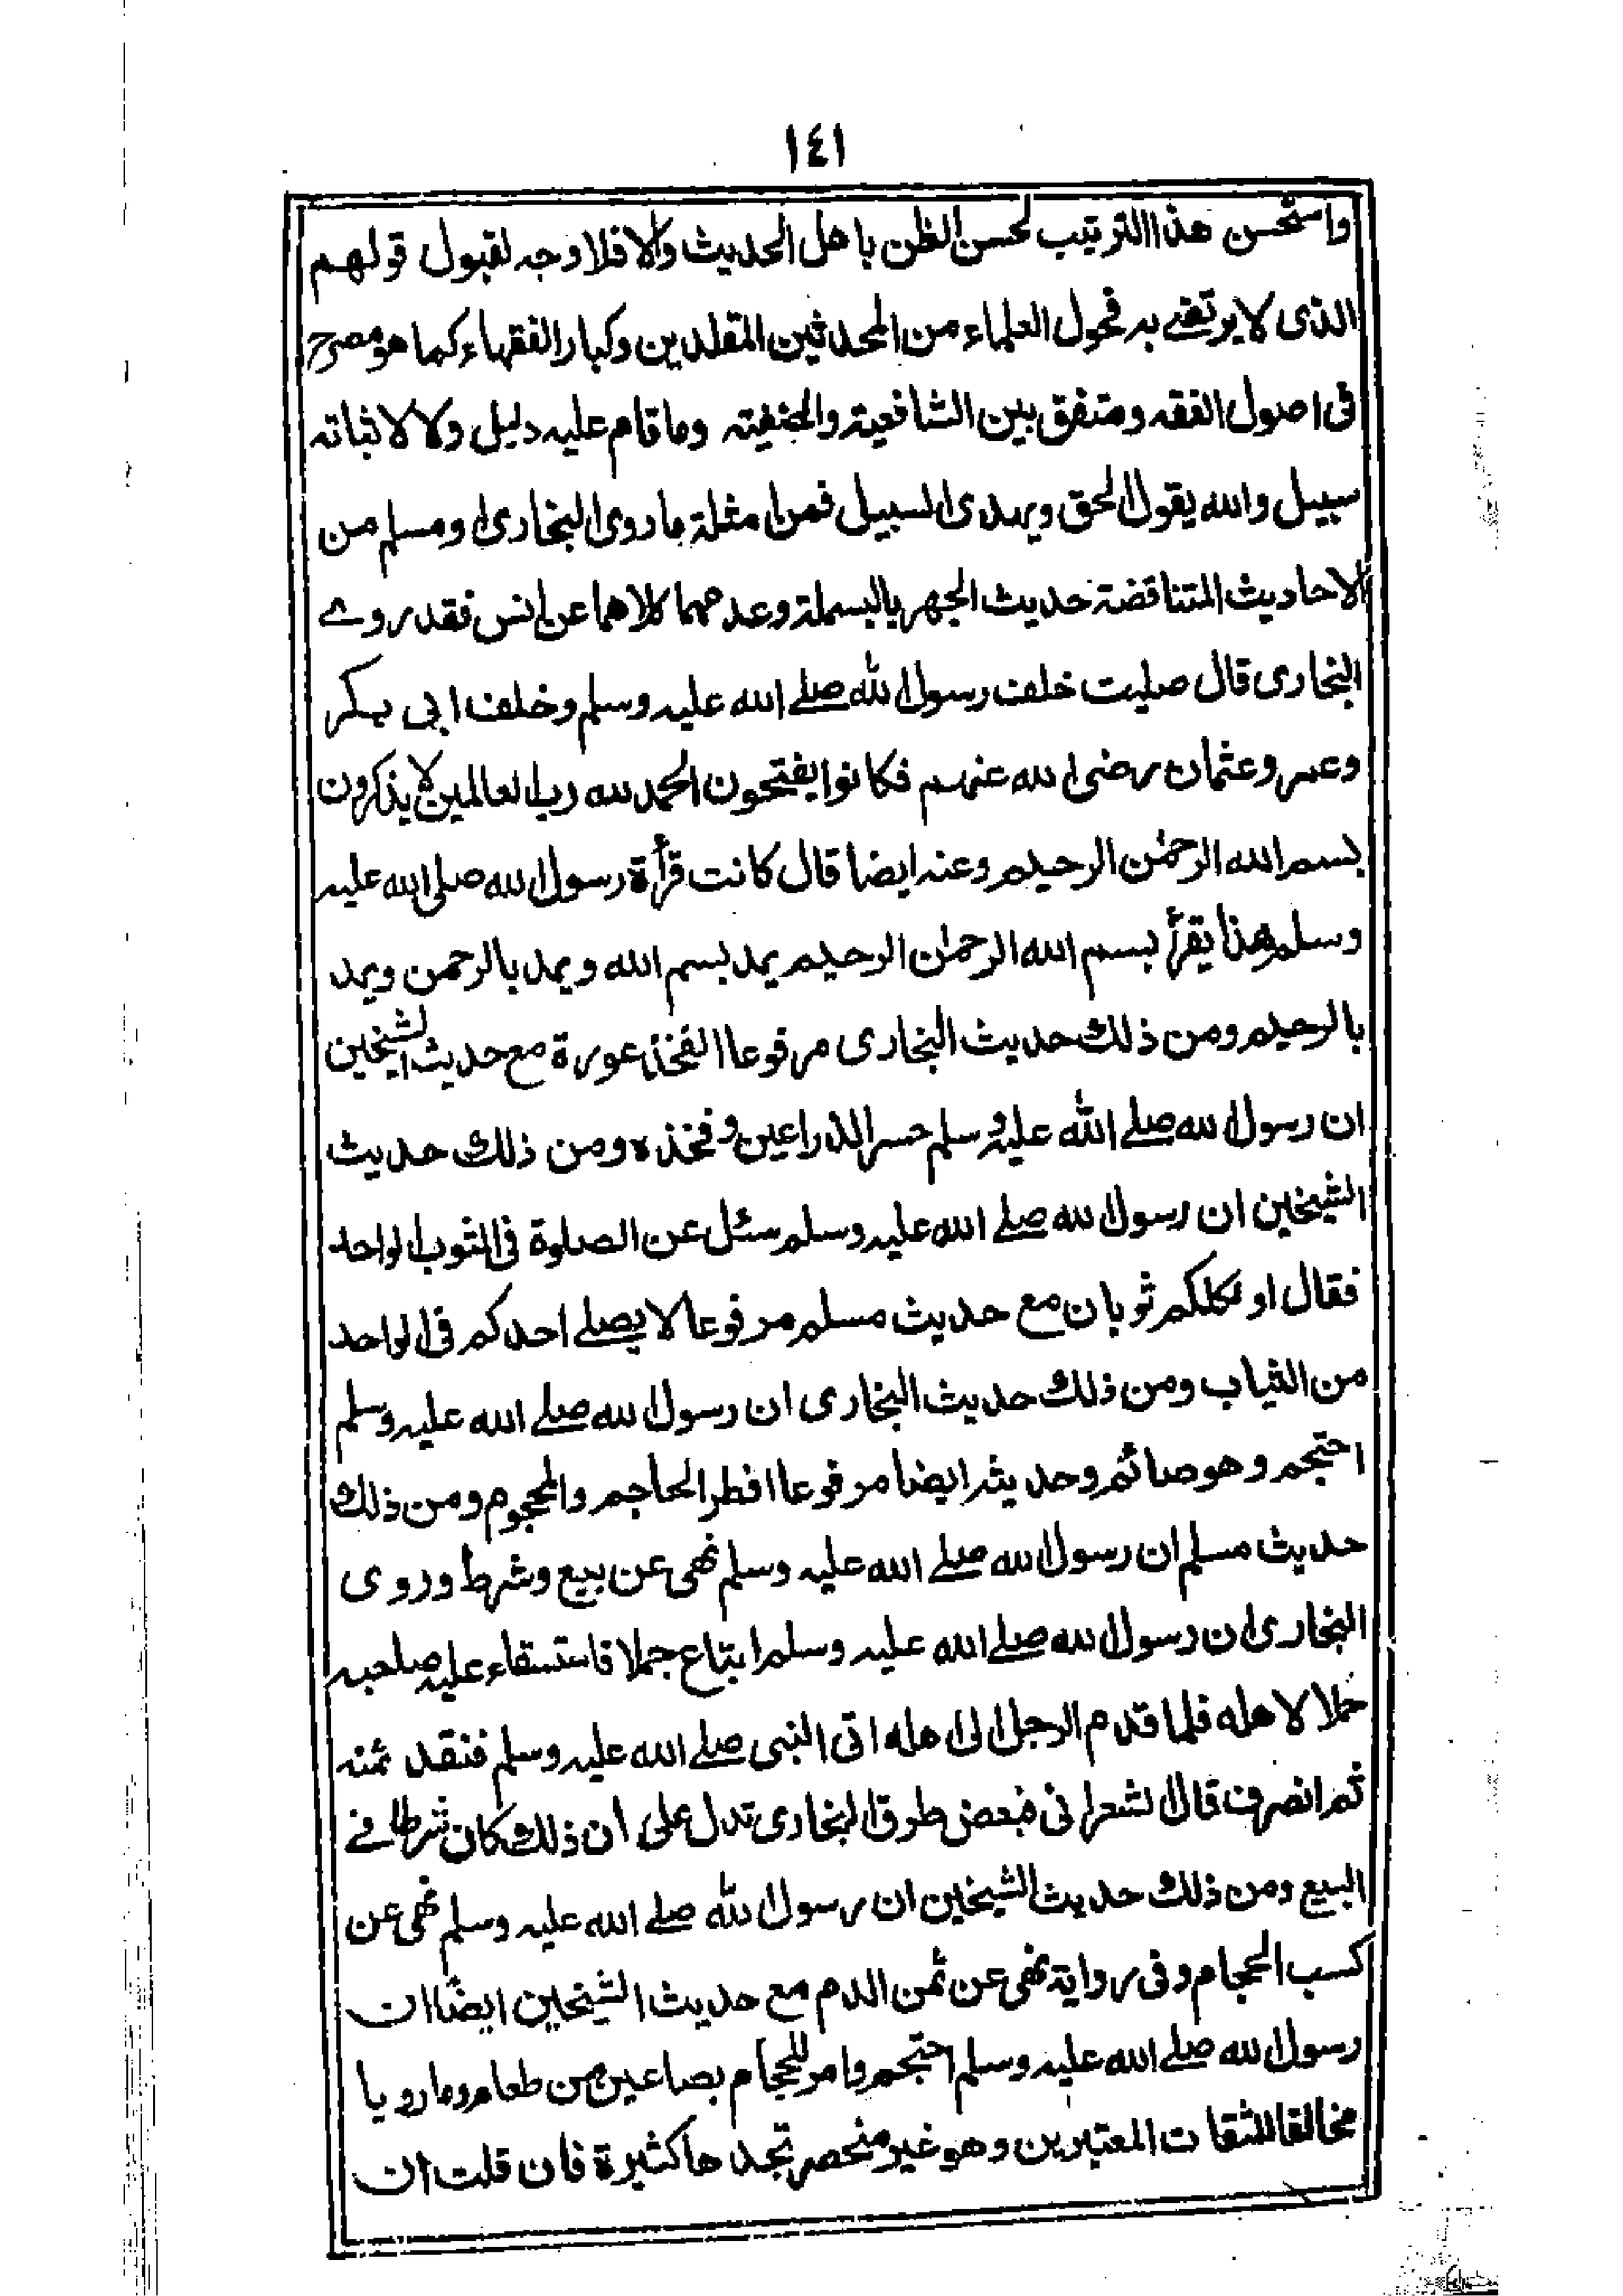 ١٤١
واستحسن هذا الترتيب لحسن الظن باهل الحديث والا فلا وجه لقبول قولهم
الذى لا يرتضے به فحول العلماء من المحدثين المقلدين وكبار الفقهاء كما هو مصرح
فى اصول الفقه ومتفق بين الشافعية والحنفيته وما قام عليه دليل ولا لاثباته
سبيل والله يقول الحق ويهدى السبيل فمن امثلة ما روى البخارى ومسلم من
الاحاديث المتناقضة حديث الجهر بالبسملة وعدمهما كلاهما عن انس فقد روے
البخارى قال صليت خلف رسول الله صلے الله عليه وسلم وخلف ابى بكر
وعمر وعثمان رضى الله عنهم فكانوا يفتحون الحمد لله رب العالمين لا يذكرون
بسم الله الرحمٰن الرحيم وعنه ايضا قال كانت قرأة رسول الله صلى الله عليه
وسلم هذا يقرأ بسم الله الرحمٰن الرحيم يمد بسم الله ويمد بالرحمن ويمد
بالرحيم ومن ذلك حديث البخارى مرفوعا الفخذ عورة مع حديث الشيخين
ان رسول الله صلے الله عليه وسلم حسر الذراعين وفخذه ومن ذلك حديث
الشيخين ان رسول الله صلے الله عليه وسلم سئل عن الصلوة فى الثوب الواحد
فقال او لكلكم ثوبان مع حديث مسلم مرفوعا لا يصلے احدكم فى الواحد
من الثياب ومن ذلك حديث البخارى ان رسول الله صلے الله عليه وسلم
احتجم وهو صائم وحديثه ايضا مرفوعا افطر الحاجم والمحجوم ومن ذلك
حديث مسلم ان رسول الله صلے الله عليه وسلم نهى عن بيع وشرط وروى
البخارى ان رسول الله صلے الله عليه وسلم ابتاع جملا فاستسقاء عليه صاحبه
حملا لاهله فلما قدم الرجل الى اهله اتى النبى صلے الله عليه وسلم فنقد ثمنه
ثم انصرف قال الشعرانى فبعض طرق البخارى تدل على ان ذلك كان شرطا فے
البيع ومن ذلك حديث الشيخين ان رسول الله صلے الله عليه وسلم نهى عن
كسب الحجام وفى رواية نهى عن ثمن الدم مع حديث الشيخين ايضا ان
رسول الله صلے الله عليه وسلم احتجم وامر للحجام بصاعين من طعام وما رويا
مخالفا للثقات المعتبرين وهو غير منحصر تجدها كثيرة فان قلت ان